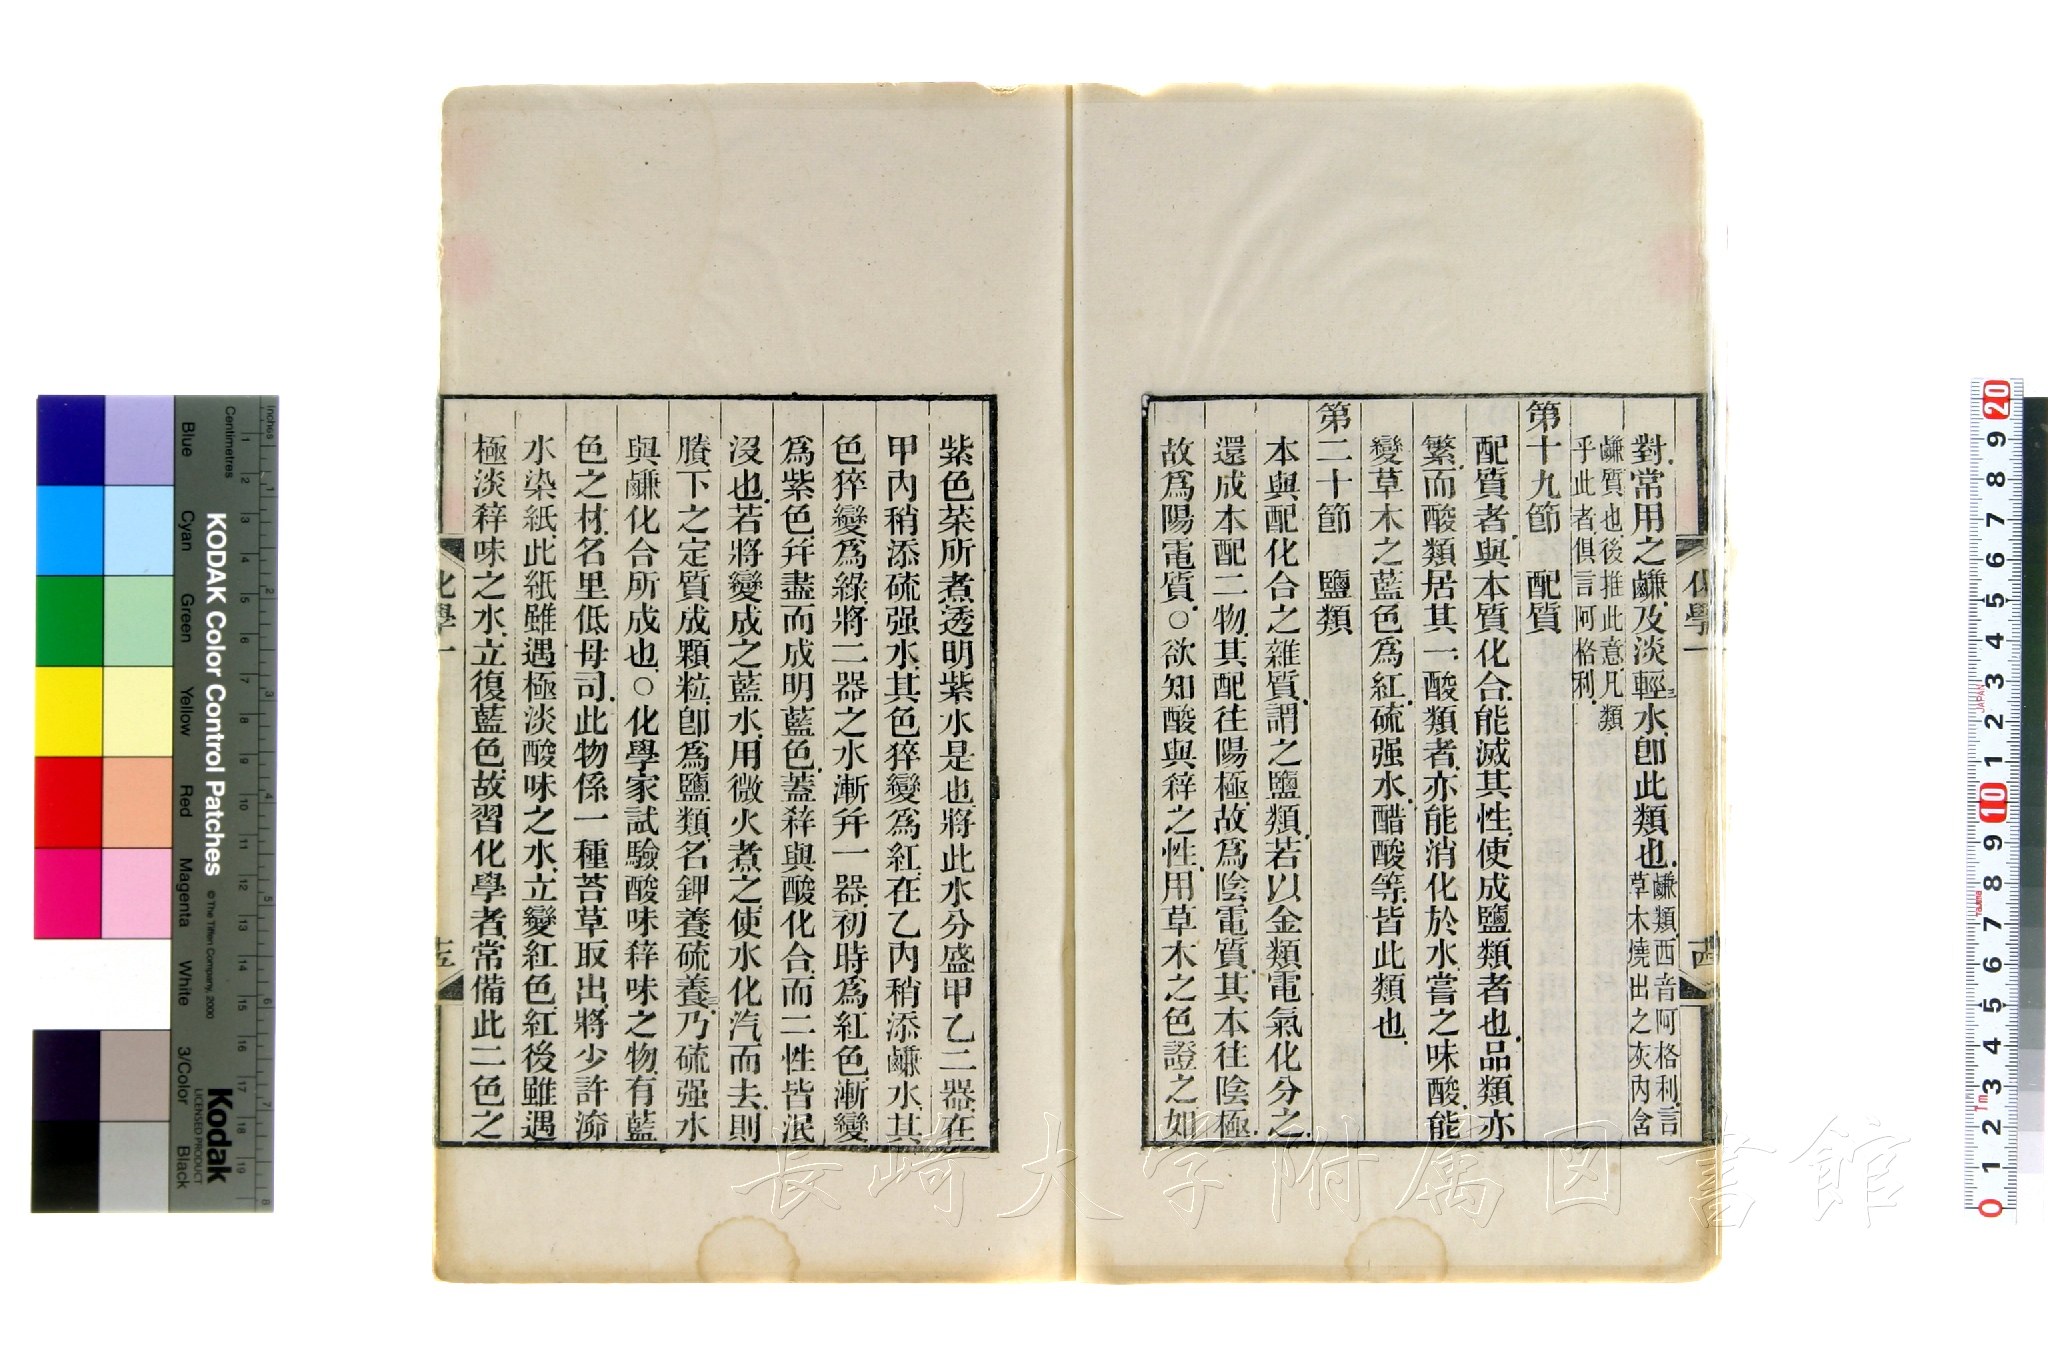 對常用之鹻及淡輕三水卽此類也鹻類西音阿格利言草木燒出之灰內含
鹻質也後推此意凡類乎此者俱言阿格利
第十九節 配質
配質者與本質化合能滅其性使成鹽類者也品類亦
繁而酸類居其一酸類者亦能消化於水嘗之味酸能
變草木之藍色爲紅硫强水醋酸等皆此類也
第二十節 鹽類
本與配化合之雜質謂之鹽類若以金類電氣化分之
還成本配二物其配往陽極故爲陰電質其本往陰極
故爲陽電質○欲知酸與䔂之性用草木之色證之如
化學一
紫色菜所煮透明紫水是也將此水分盛甲乙二器在
甲內稍添硫强水其色猝變爲紅在乙內稍添鹻水其
色猝變爲綠將二器之水漸幷一器初時爲紅色漸變
爲紫色幷盡而成明藍色蓋䔂與酸化合而二性皆泯
沒也若將變成之藍水用微火煮之使水化汽而去則
賸下之定質成顆粒卽爲鹽類名鉀養硫養三乃硫强水
與鹻化合所成也○化學家試驗酸味䔂味之物有藍
色之材名里低母司此物係一種苔草取出將少許淿
水染紙此紙雖遇極淡酸味之水立變紅色紅後雖遇
極淡䔂味之水立復藍色故習化學者常備此二色之
化學一
十五
KODAK Color Control Patches
© The Tiffen Company, 2000
Kodak
LICENSED PRODUCT
Inches
Centimetres
Blue
Cyan
Green
Yellow
Red
Magenta
White
3/Color
Black
JAPAN
Tajima
長崎大学附属図書館